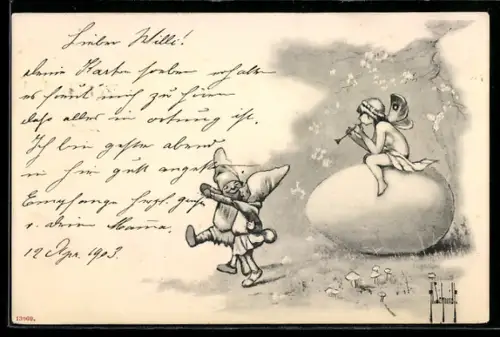 Lieber Willi!
deine Karte soeben erhalten
es freut mich zu hören
dass alles in ortnung ist.
Ich bin gestern abend
in hier gutt
Empfange herzl.
v. deine Mama.
12 Apr. 1903.
13969.